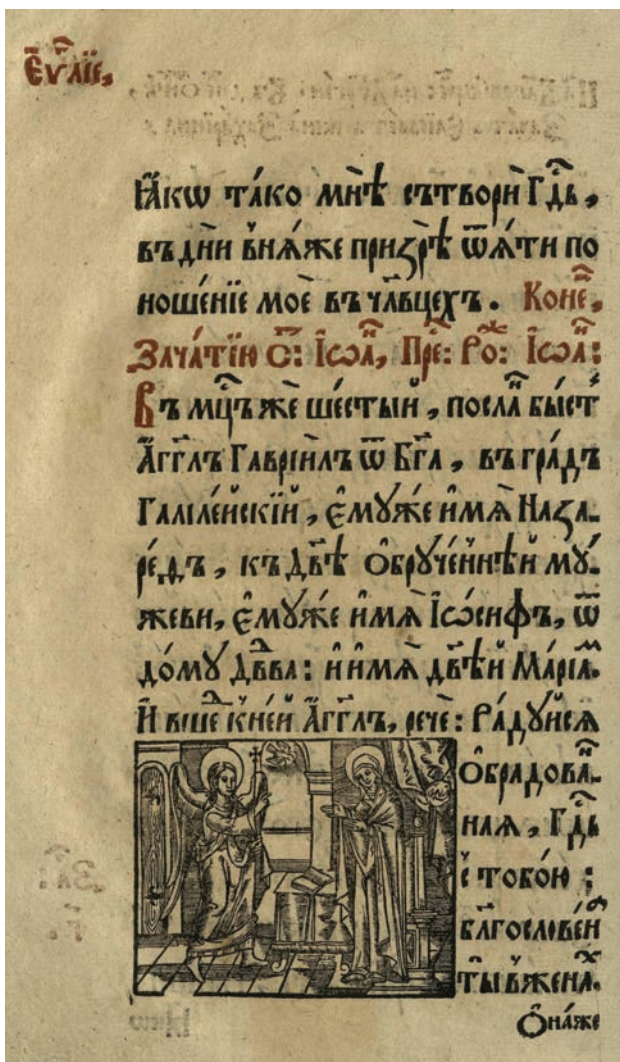 Єѵⷢ҇ліе,
Ꙗ҆́кѡ та́кѡ мнѣ̀ сътворѝ Гдⷭ҇ь,
въ дни̑ в̾нѧ́же призрѣ̀ ѿѧ́ти по
ноше́нїе моѐ въ чл҃вцехъ. Коне́цⷰ,
Зача́тїю С: Їѡⷩ҇а, Пре́ⷣ: Роⷤ: Їѡⷩ҇а:
Въ мц҃ъ же шесты́й, по́слаⷩ бы́стⷭ҇
А҆́гг҃лъ Гаврїи́лъ ѿ Бг҃а, въ гра́дъ
Галїле́йскїй, є҆мꙋ́же и҆́мѧ Наза-
ре́ѳъ, къ Дв҃ѣ ѻ҆брꙋче́ннѣй мꙋ́-
жеви, є҆мꙋ́же и҆́мѧ Їѡ́сифъ, ѿ
до́мꙋ Дв҃ва: и҆ и҆́мѧ дв҃ѣй Марїа́ⷨ.
И҆ вшеⷣ к̾не́й А҆́гг҃лъ, речѐ: Ра́дꙋйсѧ
Ѻ҆бра́дова́ⷩ-
наѧ, Гдⷭ҇ь
с̾ тобо́ю:
бл҃гослове́нⷩ
ты̀ в̾ жена́ⷯ.
Ѻ҆на́же